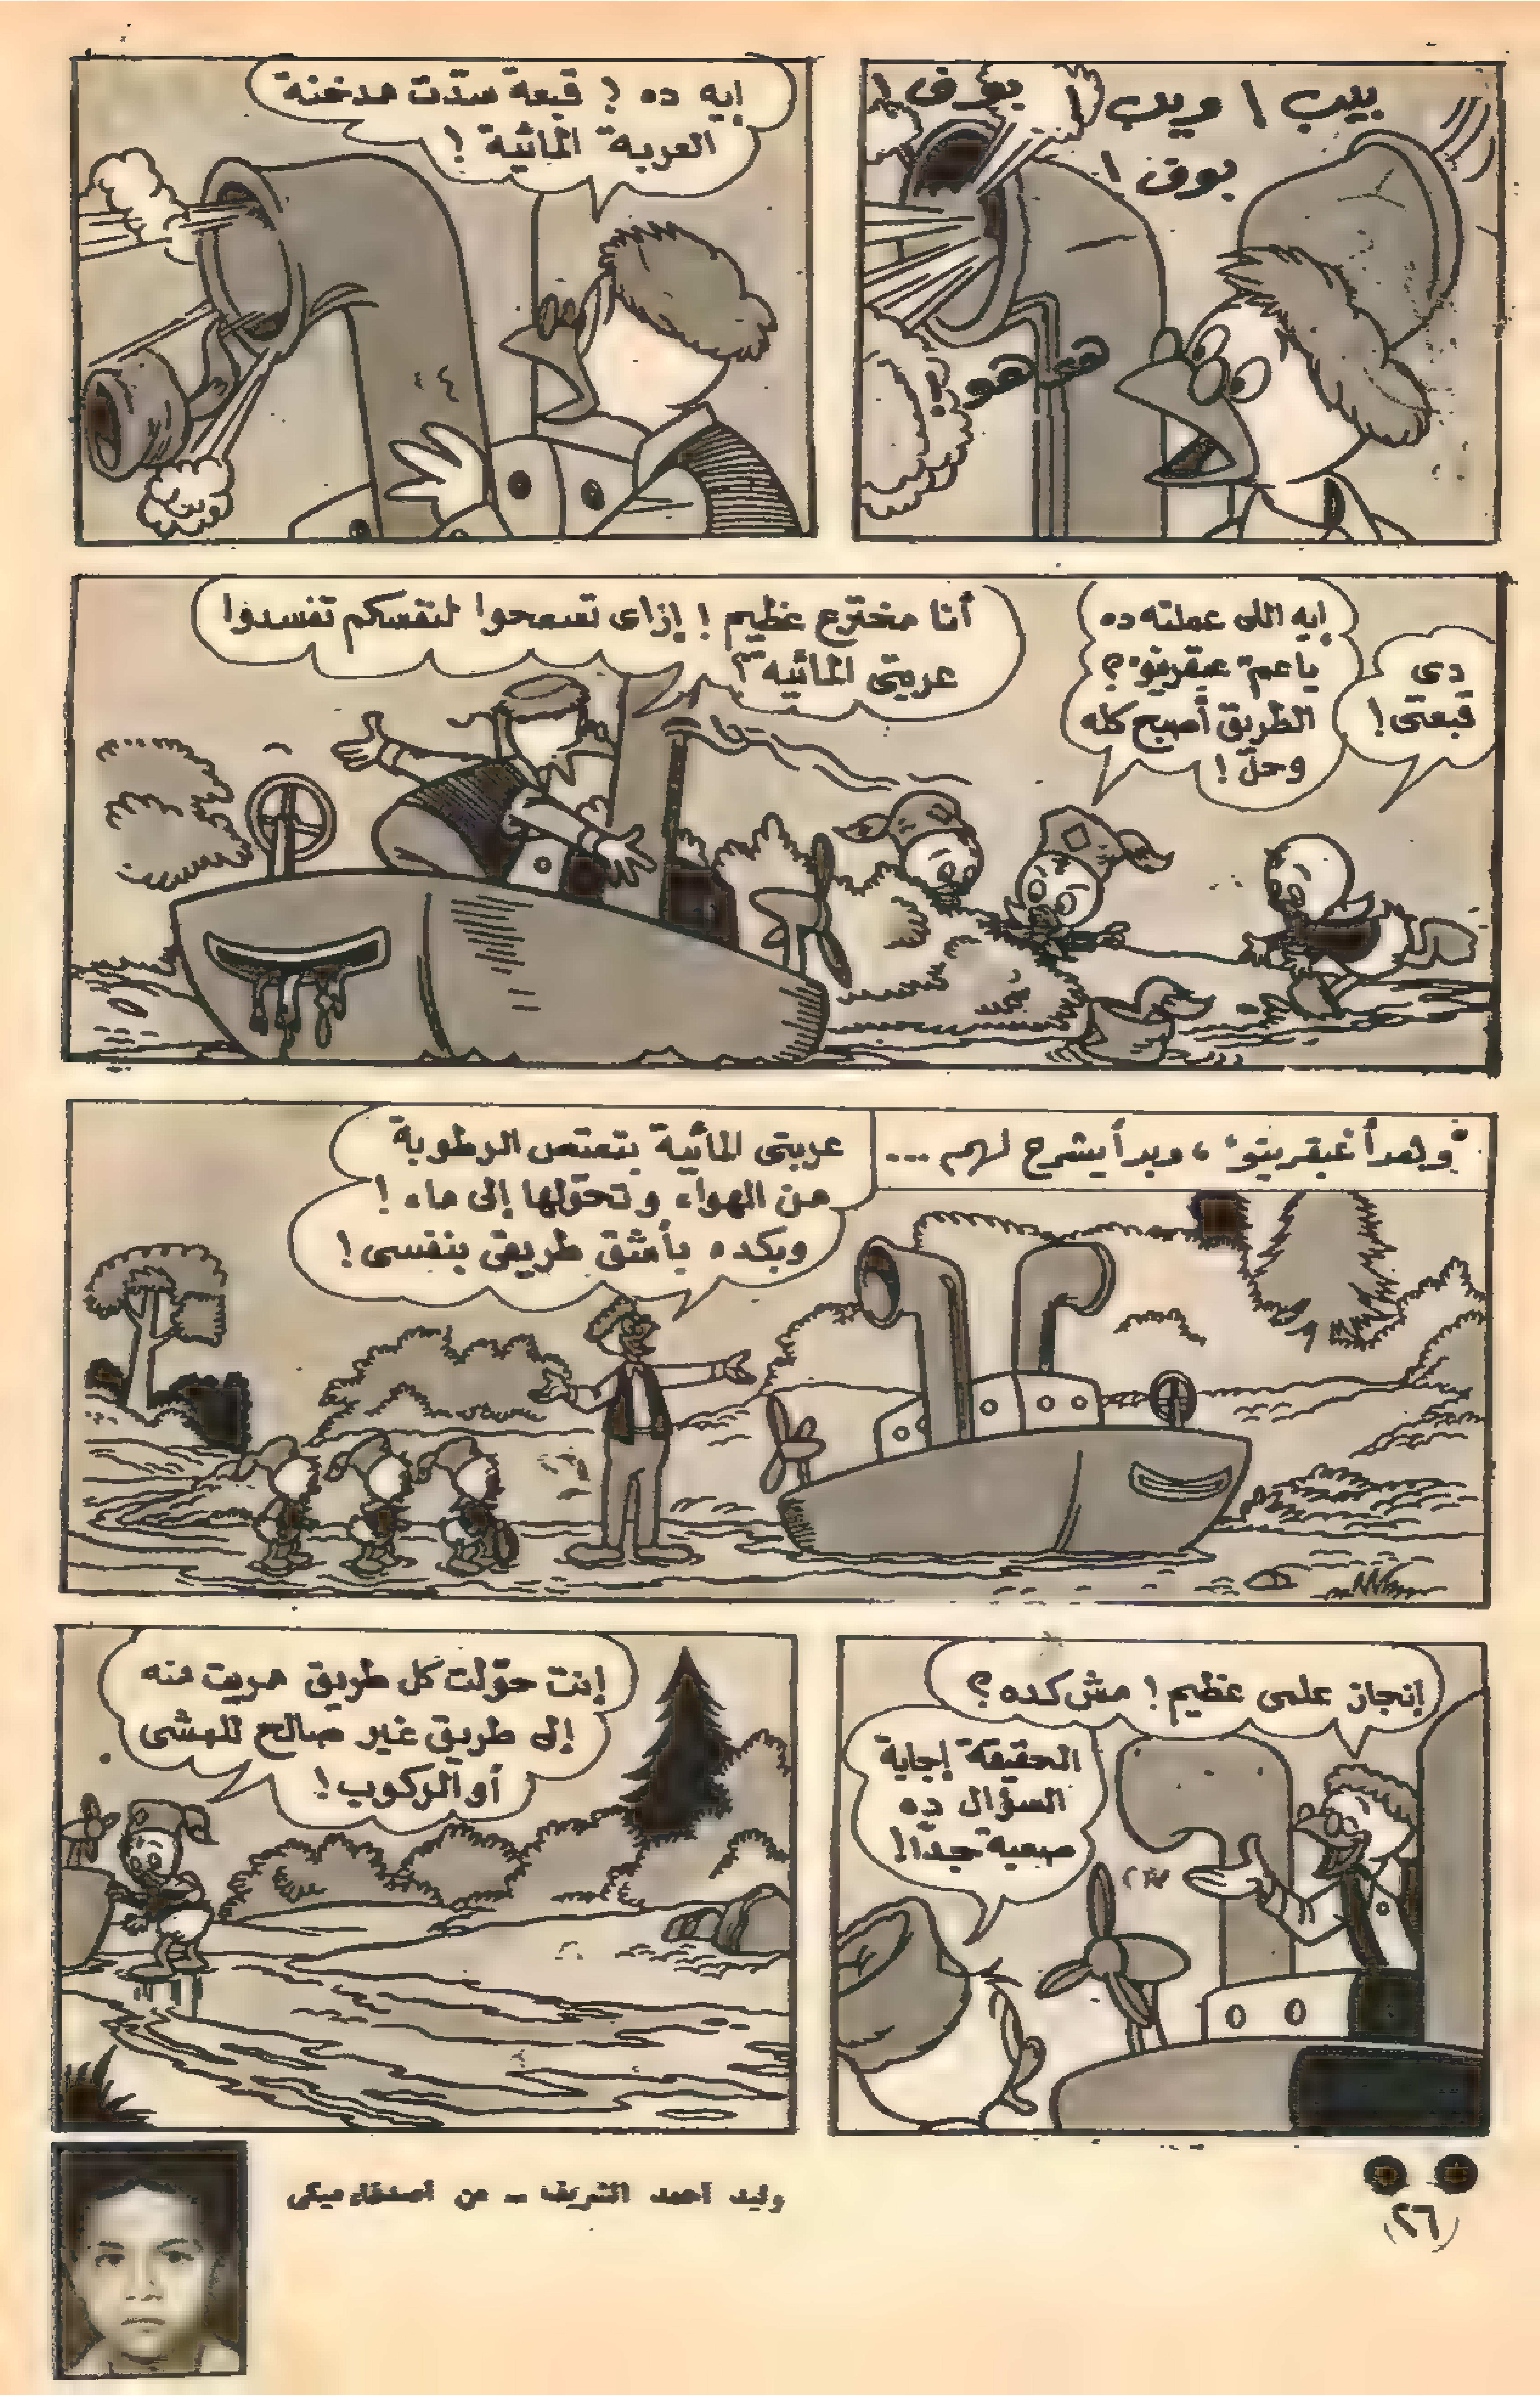 بيب ! ويب ! بوف !
بوف !
هـ هو !
إيه ده ؟ قبعة سدّت مدخنة
العربة المائية !
دى
قبعتى !
إيه اللى عملته ده
ياعم "عبقرينو" ؟
الطريق أصبح كله
وحل !
أنا مخترع عظيم ! إزاى تسمحوا لنفسكم تفسدوا
عربتى المائية ؟
وهدأ "عبقرينو" ، وبدأ يشرح لهم ...
عربتى المائية بتمتص الرطوبة
من الهواء وتحولها إلى ماء !
وبكده بأشق طريقى بنفسى !
إنجاز علمى عظيم ! مش كده ؟
الحقيقة إجابة
السؤال ده
صعبة جدًا !
إنت حوّلت كل طريق مريت منه
إلى طريق غير صالح للمشى
أو الركوب !
وليد أحمد الشريف - من أصدقاء ميكى
(٢٦)